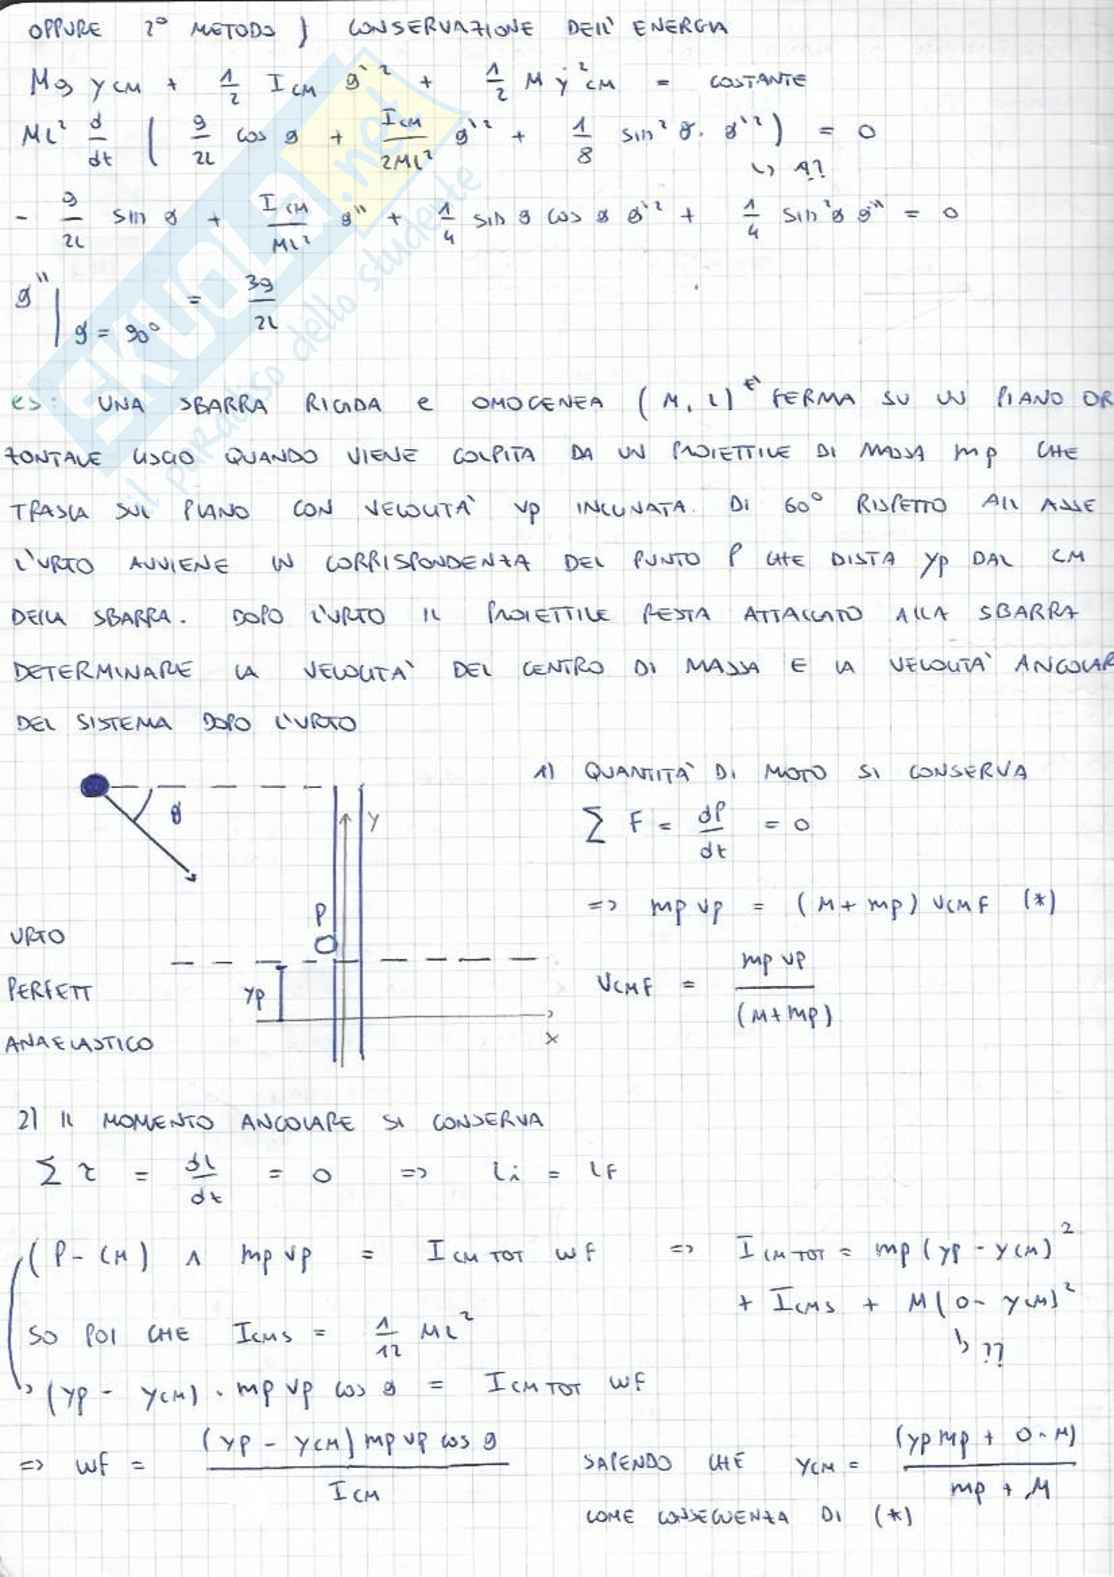 OPPURE 2° METODO) CONSERVAZIONE DELL' ENERGIA
Mg yCM + 1/2 ICM ϑ˙² + 1/2 M ẏ²CM = COSTANTE
ML² d/dt ( g/2L cos ϑ + ICM/2ML² ϑ'² + 1/8 sin² ϑ · ϑ'² ) = 0
↳ 1??
- g/2L sin ϑ + ICM/ML² ϑ'' + 1/4 sin ϑ cos ϑ ϑ'² + 1/4 sin²ϑ ϑ'' = 0
ϑ'' | ϑ = 90° = 3g/2L
es: UNA SBARRA RIGIDA e OMOGENEA (M, L) E' FERMA SU UN PIANO OR
ZONTALE LISCIO QUANDO VIENE COLPITA DA UN PROIETTILE DI MASSA mp CHE
TRASLA SUL PIANO CON VELOCITA' vp INCLINATA DI 60° RISPETTO ALL ASSE
L'URTO AVVIENE IN CORRISPONDENZA DEL PUNTO P CHE DISTA yp DAL CM
DELLA SBARRA. DOPO L'URTO IL PROIETTILE RESTA ATTACCATO ALLA SBARRA
DETERMINARE LA VELOCITA' DEL CENTRO DI MASSA E LA VELOCITA' ANGOLAR
DEL SISTEMA DOPO L'URTO
ϑ
y
P
yp
x
URTO
PERFETT
ANAELASTICO
1) QUANTITA' DI MOTO SI CONSERVA
Σ F = dP/dt = 0
=> mp vp = (M + mp) vCMF (*)
vCMF = mp vp/(M+mp)
2) IL MOMENTO ANGOLARE SI CONSERVA
Σ τ = dL/dt = 0 => Li = LF
(P - CM) ∧ mp vp = ICM TOT wF => ICM TOT = mp (yp - yCM)²
+ ICMS + M(0 - yCM)²
↳ ??
SO POI CHE ICMS = 1/12 ML²
↳ (yp - yCM) · mp vp cos ϑ = ICM TOT wF
=> wF = (yp - yCM) mp vp cos ϑ/ICM
SAPENDO CHE yCM = (yp mp + 0·M)/mp + M
COME CONSEGUENZA DI (*)
SKUOLA.net
il paradiso dello studente